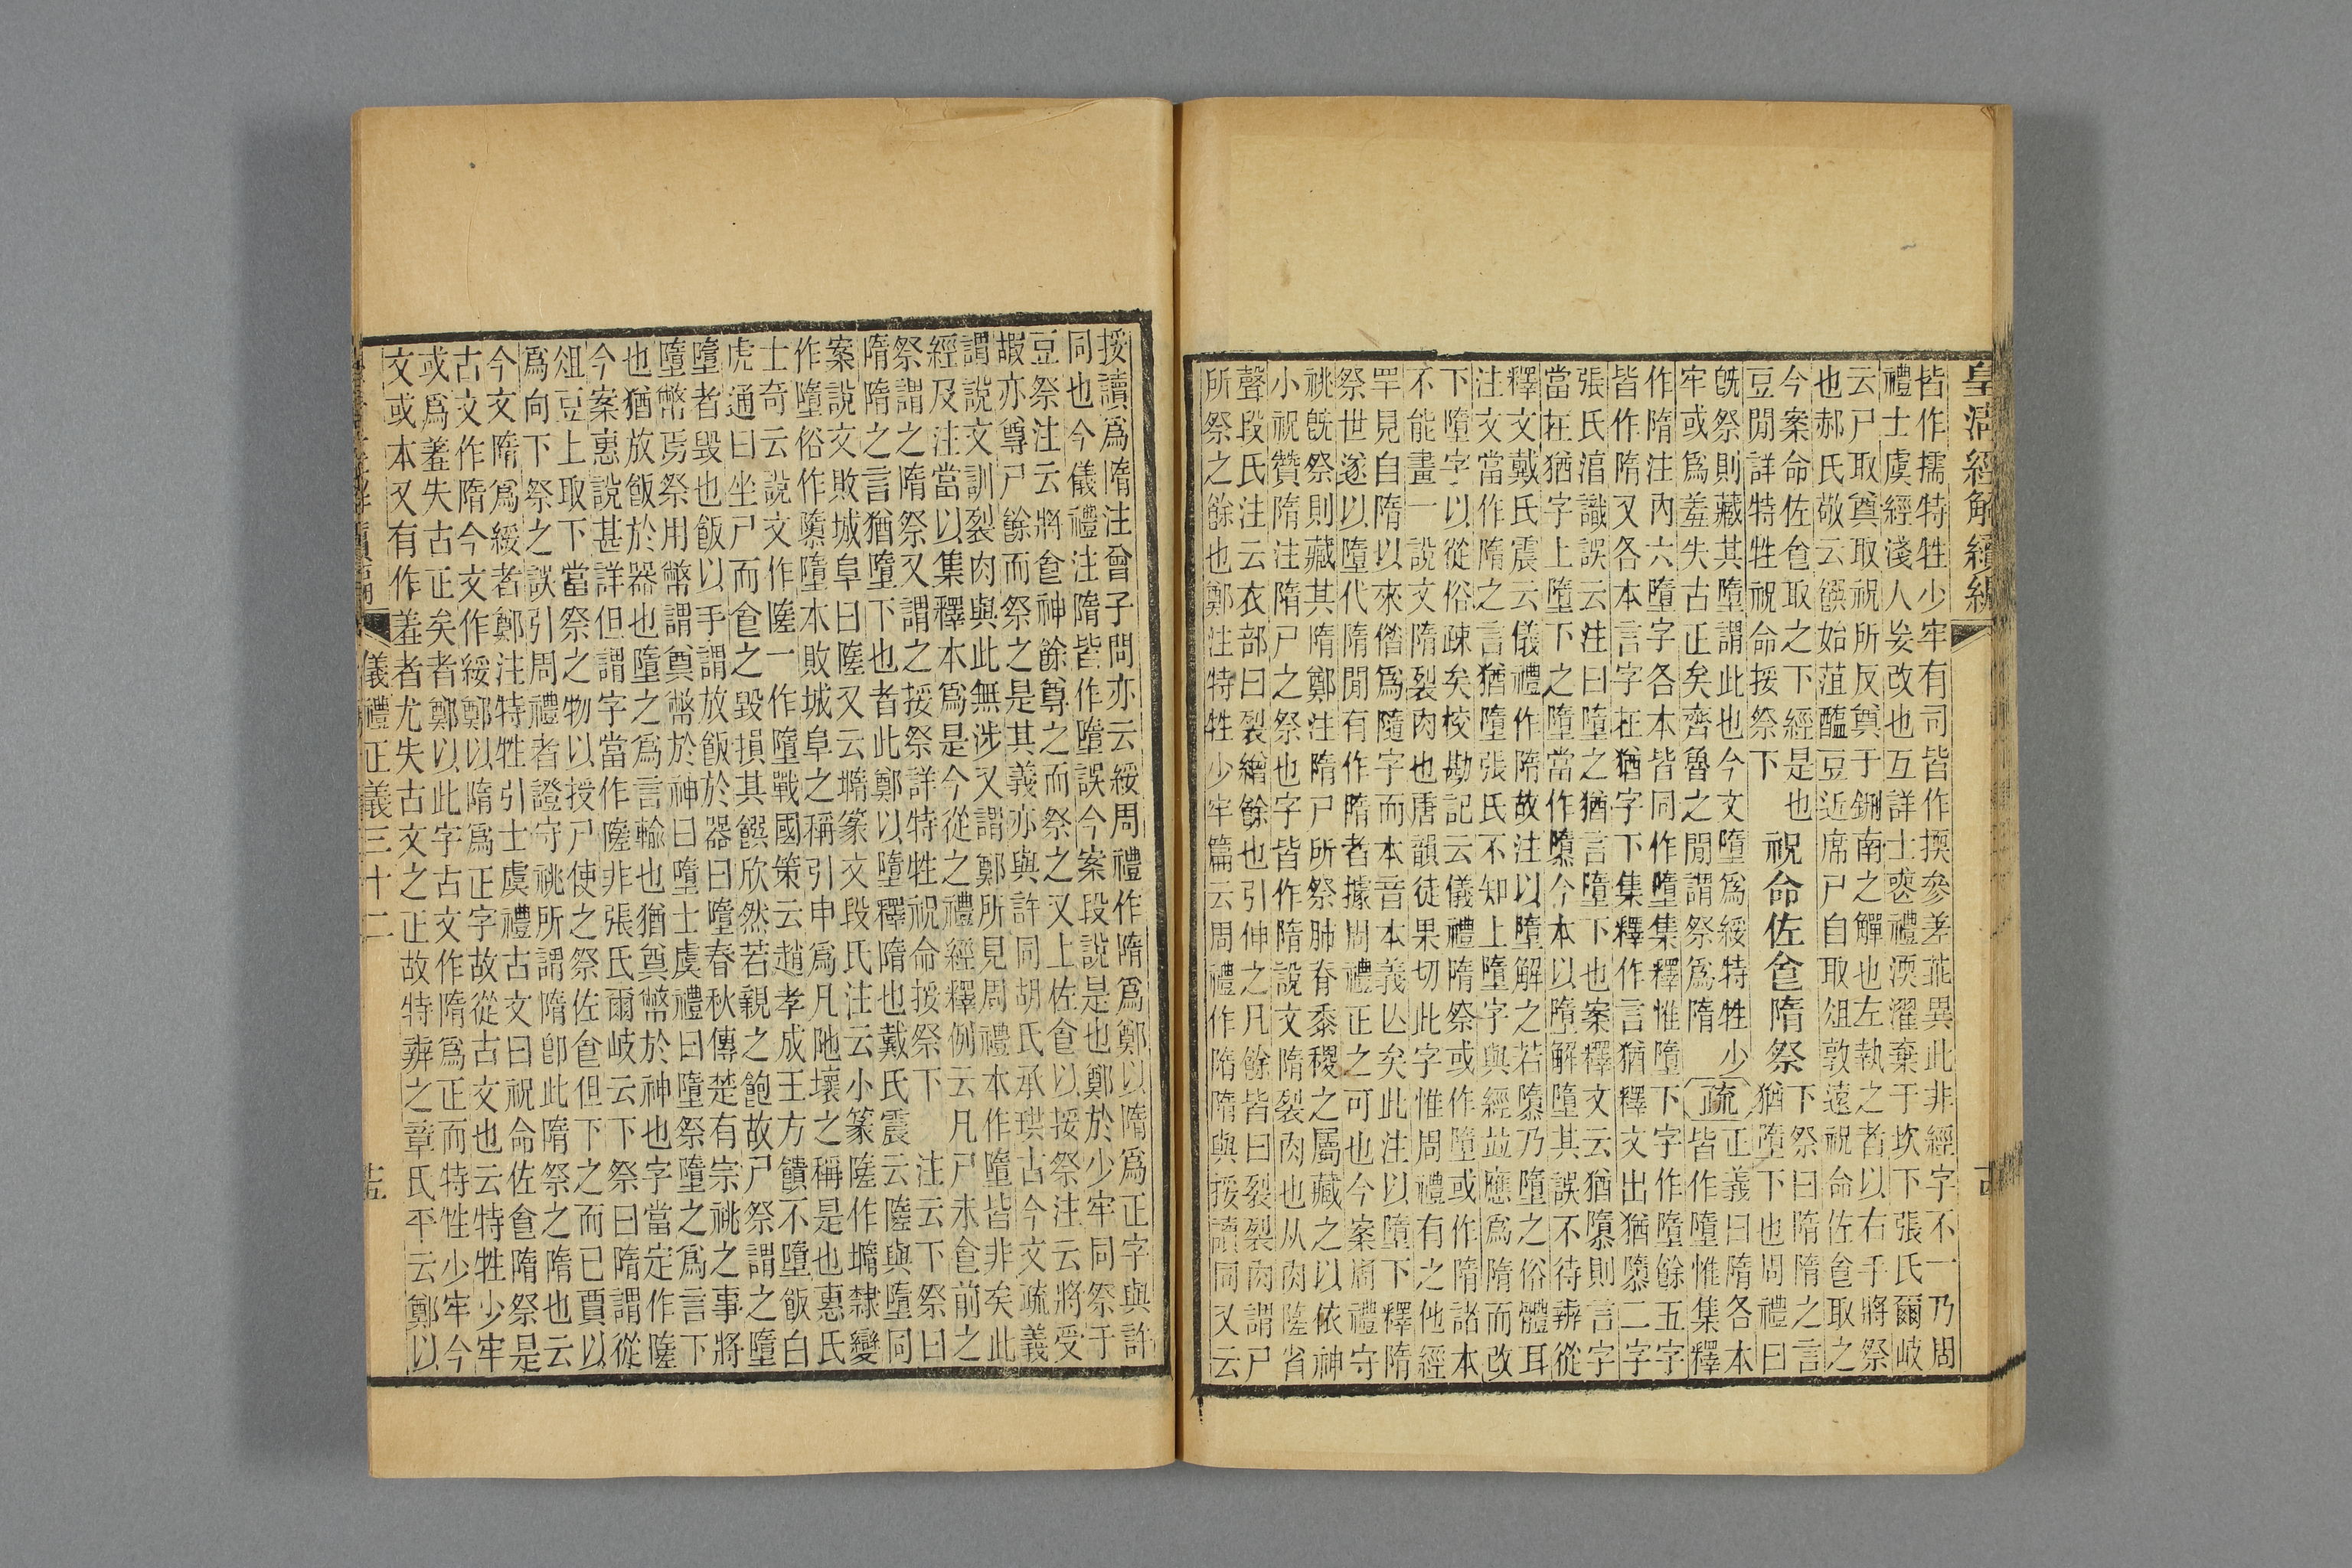 皇清經解續編
皆作擩特牲少牢有司皆作挼參差乖異此非經字不一乃周
禮士虞經淺人妄改也互詳士喪禮渜濯棄于坎下張氏爾岐
云尸取奠取祝所反奠于鉶南之觶也左執之者以右手將祭
也郝氏敬云饌始菹醢豆近席尸自取俎敦遠祝命佐食取之
今案命佐食取之下經是也
豆閒詳特牲祝命挼祭下
祝命佐食隋祭
下祭曰隋隋之言
猶墮下也周禮曰
旣祭則藏其墮謂此也今文墮爲綏特牲少
牢或爲羞失古正矣齊魯之閒謂祭爲隋
疏
正義曰隋各本
皆作墮惟集釋
作隋注內六墮字各本皆同作墮集釋惟墮下字作墮餘五字
皆作隋又各本言字在猶字下集釋作言猶釋文出猶隳二字
張氏淔識誤云注曰墮之猶言墮下也案釋文云猶隳則言字
當在猶字上墮下之墮當作隳今本以墮解墮其誤不待辨從
釋文戴氏震云儀禮作隋故注以墮解之若隳乃墮之俗體耳
注文當作隋之言猶墮張氏不知上墮字與經並應爲隋而改
下墮字以從俗疎矣校勘記云儀禮隋祭或作墮或作隋諸本
不能畫一說文隋裂肉也唐韻徒果切此字惟周禮有之他經
罕見自隋以來偕爲隨字而本音本義亾矣此注以墮下釋隋
祭世遂以墮代隋閒有作隋者據周禮正之可也今案周禮守
祧旣祭則藏其隋鄭注隋尸所祭肺脊黍稷之屬藏之以依神
小祝贊隋注隋尸之祭也字皆作隋說文隋裂肉也从肉隓省
聲段氏注云衣部曰裂繒餘也引伸之凡餘皆曰裂裂肉謂尸
所祭之餘也鄭注特牲少牢篇云周禮作隋隋與挼讀同又云
挼讀爲隋注曾子問亦云綏周禮作隋爲鄭以隋爲正字與許
同也今儀禮注隋皆作墮誤今案段說是也鄭於少牢同祭于
豆祭注云將食神餘尊之而祭之又上佐食以挼祭注云將受
嘏亦尊尸餘而祭之是其義亦與許同胡氏承珙古今文疏義
謂說文訓裂肉與此無涉又謂鄭所見周禮本作墮皆非矣此
經及注當以集釋本爲是今從之禮經釋例云凡尸未食前之
祭謂之隋祭又謂之挼祭詳特牲祝命挼祭下 注云下祭曰
隋隋之言猶墮下也者此鄭以墮釋隋也戴氏震云隓與墮同
案說文敗城阜曰隓又云㙐篆文段氏注云小篆隓作㙐隸變
作墮俗作隳墮本敗城阜之稱引申爲凡阤壞之稱是也惠氏
士奇云說文作隓一作墮戰國策云趙孝成王方饋不墮飯白
虎通曰坐尸而食之毀損其饌欣然若親之飽故尸祭謂之墮
墮者毀也飯以手謂放飯於器曰墮春秋傳楚有宗祧之事將
墮幣焉祭用幣謂奠幣於神曰墮士虞禮曰墮祭墮之爲言下
也猶放飯於器也墮之爲言輸也猶奠幣於神也字當定作隓
今案惠說甚詳但謂字當作隓非張氏爾岐云下祭曰隋謂從
俎豆上取下當祭之物以授尸使之祭佐食但下之而已賈以
爲向下祭之誤引周禮者證守祧所謂隋卽此隋祭之隋也云
今文隋爲綏者鄭注特牲引士虞禮古文曰祝命佐食隋祭是
古文作隋今文作綏鄭以隋爲正字故從古文也云特牲少牢
或爲羞失古正矣者鄭以此字古文作隋爲正而特牲少牢今
文或本又有作羞者尤失古文之正故特辨之章氏平云鄭以
儀禮正義三十二